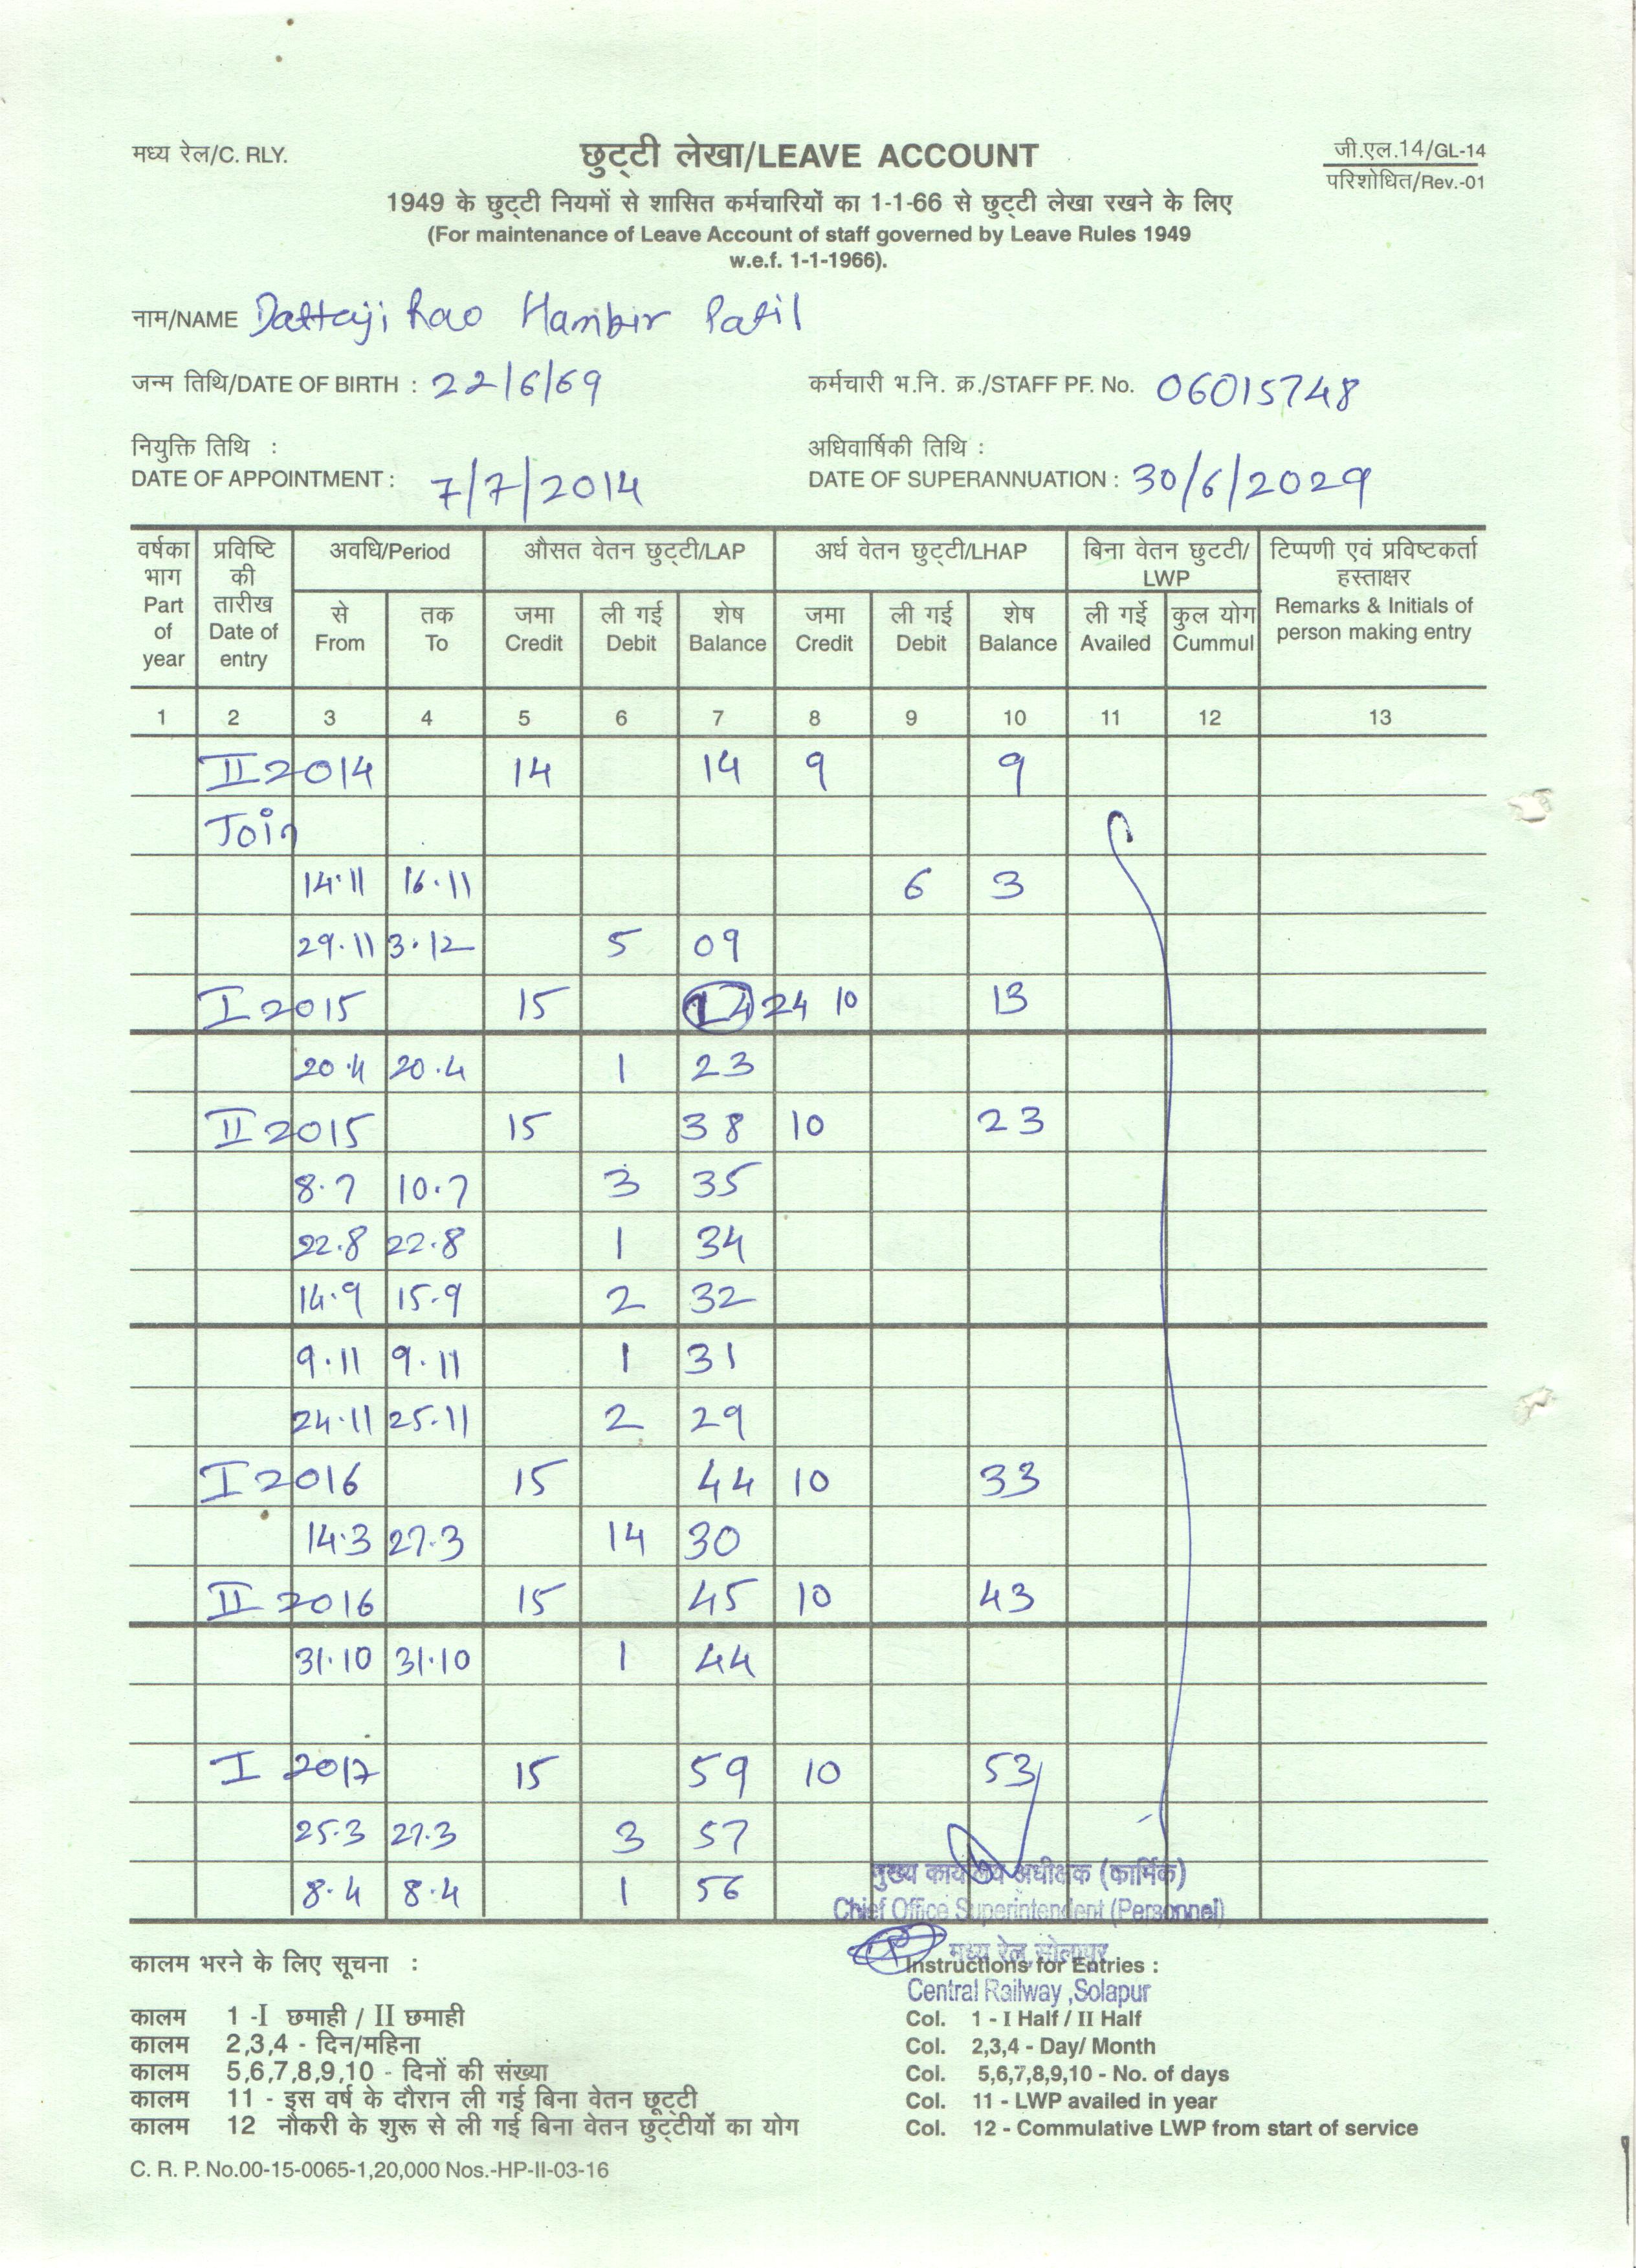 मध्य रेल/C. RLY.
छुट्टी लेखा/LEAVE ACCOUNT
जी.एल.14/GL-14
परिशोधित/Rev.-01
1949 के छुट्टी नियमों से शासित कर्मचारियों का 1-1-66 से छुट्टी लेखा रखने के लिए
(For maintenance of Leave Account of staff governed by Leave Rules 1949
w.e.f. 1-1-1966).
नाम/NAME Dattaji Rao Hambir Patil
जन्म तिथि/DATE OF BIRTH : 22/6/69 कर्मचारी भ.नि. क्र./STAFF PF. No. 06015748
नियुक्ति तिथि : अधिवार्षिकी तिथि :
DATE OF APPOINTMENT : 7/7/2014 DATE OF SUPERANNUATION : 30/6/2029
वर्षका भाग Part of year
प्रविष्टि की तारीख Date of entry
अवधि/Period
से From
तक To
औसत वेतन छुट्टी/LAP
जमा Credit
ली गई Debit
शेष Balance
अर्ध वेतन छुट्टी/LHAP
जमा Credit
ली गई Debit
शेष Balance
बिना वेतन छुटटी/LWP
ली गईे Availed
कुल योग Cummul
टिप्पणी एवं प्रविष्टकर्ता हस्ताक्षर
Remarks & Initials of person making entry
1 2 3 4 5 6 7 8 9 10 11 12 13
II 2014 14 14 9 9
Join
14.11 16.11 6 3
29.11 3.12 5 09
I 2015 15 24 10 13
20.4 20.4 1 23
II 2015 15 38 10 23
8.7 10.7 3 35
22.8 22.8 1 34
14.9 15.9 2 32
9.11 9.11 1 31
24.11 25.11 2 29
I 2016 15 44 10 33
14.3 27.3 14 30
II 2016 15 45 10 43
31.10 31.10 1 44
I 2017 15 59 10 53
25.3 27.3 3 57
8.4 8.4 1 56
मुख्य कार्यालय अधीक्षक (कार्मिक)
Chief Office Superintendent (Personnel)
मध्य रेल, सोलापुर
Central Railway, Solapur
कालम भरने के लिए सूचना : Instructions for Entries :
कालम 1 -I छमाही / II छमाही Col. 1 - I Half / II Half
कालम 2,3,4 - दिन/महिना Col. 2,3,4 - Day/ Month
कालम 5,6,7,8,9,10 - दिनों की संख्या Col. 5,6,7,8,9,10 - No. of days
कालम 11 - इस वर्ष के दौरान ली गई बिना वेतन छूट्टी Col. 11 - LWP availed in year
कालम 12 नौकरी के शुरू से ली गई बिना वेतन छुट्टीयों का योग Col. 12 - Commulative LWP from start of service
C. R. P. No.00-15-0065-1,20,000 Nos.-HP-II-03-16